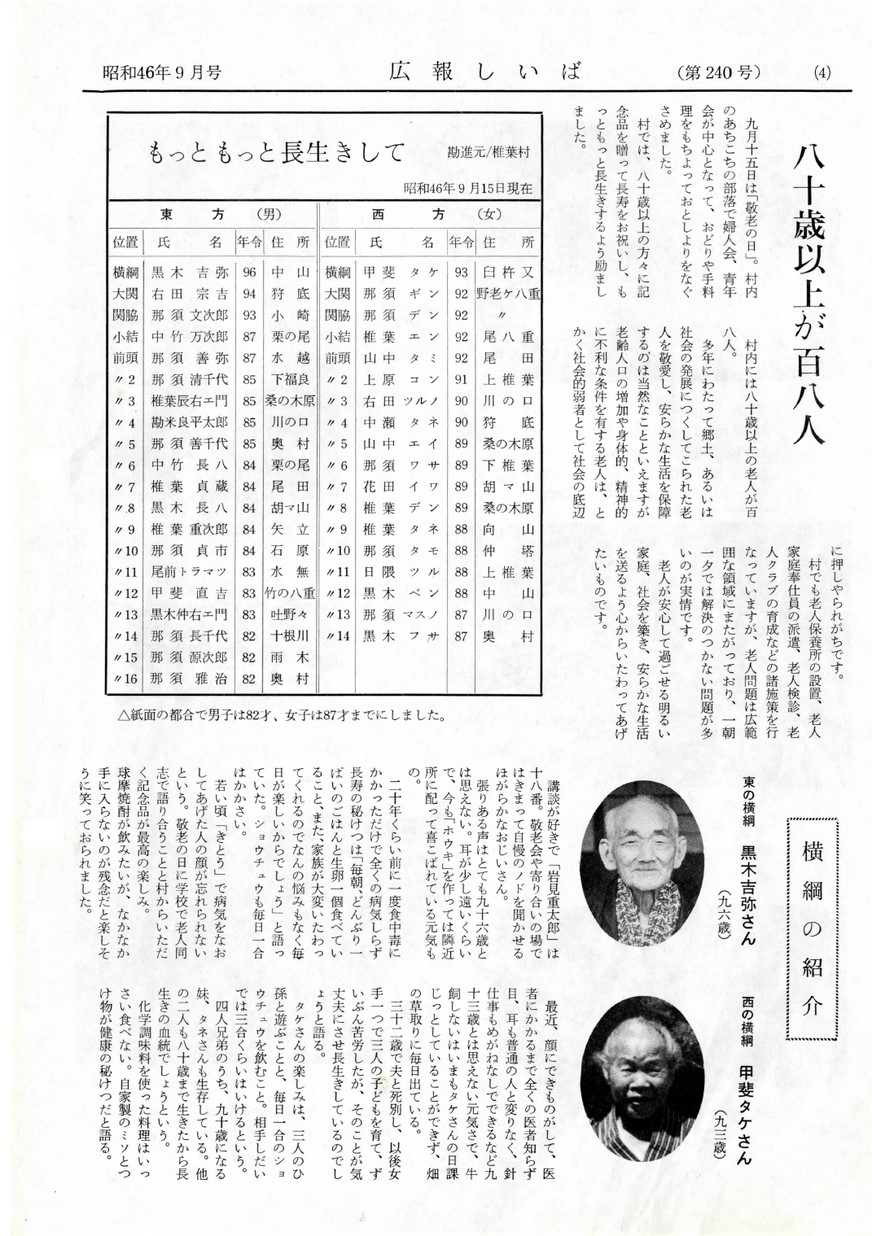 昭和46年9月号
広報しいば
(第240号)
(4)
八十歳以上が百八人
九月十五日は「敬老の日」。村内
のあちこちの部落で婦人会、青年
会が中心となって、おどりや手料
理をもちよっておとしよりをなぐ
さめました。
村では、八十歳以上の方々に記
念品を贈って長寿をお祝いし、も
っともっと長生きするよう励まし
ました。
村内には八十歳以上の老人が百
八人。
多年にわたって郷土、あるいは
社会の発展につくしてこられた老
人を敬愛し、安らかな生活を保障
するのは当然なことといえますが
老齢人口の増加や身体的、精神的
に不利な条件を有する老人は、と
かく社会的弱者として社会の底辺
に押しやられがちです。
村でも老人保養所の設置、老人
家庭奉仕員の派遣、老人検診、老
人クラブの育成などの諸施策を行
なっていますが、老人問題は広範
囲な領域にまたがっており、一朝
一夕では解決のつかない問題が多
いのが実情です。
老人が安心して過ごせる明るい
家庭、社会を築き、安らかな生活
を送るよう心からいたわってあげ
たいものです。
もっともっと長生きして 勘進元/椎葉村
昭和46年9月15日現在
東方(男) 西方(女)
位置 氏名 年令 住所 位置 氏名 年令 住所
横綱 黒木吉弥 96 中山 横綱 甲斐タケ 93 臼杵又
大関 右田宗吉 94 狩底 大関 那須ギン 92 野老ケ八重
関脇 那須文次郎 93 小崎 関脇 那須デン 92 〃
小結 中竹万次郎 87 栗の尾 小結 椎葉エン 92 尾八重
前頭 那須善弥 87 水越 前頭 山中タミ 92 尾田
〃2 那須清千代 85 下福良 〃2 上原コン 91 上椎葉
〃3 椎葉辰右エ門 85 桑の木原 〃3 右田ツルノ 90 川の口
〃4 勘米良平太郎 85 川の口 〃4 中瀬タネ 90 狩底
〃5 那須善千代 85 奥村 〃5 山中エイ 89 桑の木原
〃6 中竹長八 84 栗の尾 〃6 那須ワサ 89 下椎葉
〃7 椎葉貞蔵 84 尾田 〃7 花田イワ 89 胡マ山
〃8 黒木長八 84 胡マ山 〃8 椎葉デン 89 桑の木原
〃9 椎葉重次郎 84 矢立 〃9 椎葉タネ 88 向山
〃10 那須貞市 84 石原 〃10 那須タモ 88 仲塔
〃11 尾前トラマツ 83 水無 〃11 日隈ツル 88 上椎葉
〃12 甲斐直吉 83 竹の八重 〃12 黒木ベン 88 中山
〃13 黒木仲右エ門 83 吐野々 〃13 那須マスノ 87 川の口
〃14 那須長千代 82 十根川 〃14 黒木フサ 87 奥村
〃15 那須源次郎 82 雨木
〃16 那須雅治 82 奥村
△紙面の都合で男子は82才、女子は87才までにしました。
横綱の紹介
東の横綱 黒木吉弥さん
(九六歳)
講談が好きで「岩見重太郎」は
十八番。敬老会や寄り合いの場で
はきまって自慢のノドを聞かせる
ほがらかなおじいさん。
張りある声はとても九十六歳と
は思えない。耳が少し遠いくらい
で、今も「ホウキ」を作っては隣近
所に配って喜こばれている元気も
の。
二十年くらい前に一度食中毒に
かかっただけで全くの病気しらず
長寿の秘けつは「毎朝、どんぶり一
ぱいのごはんと生卵一個食べてい
ること、また、家族が大変いたわっ
てくれるのでなんの悩みもなく毎
日が楽しいからでしょう」と語っ
ていた。ショウチュウも毎日一合
はかかさい。
若い頃「きとう」で病気をなお
してあげた人の顔が忘れられない
という。敬老の日に学校で老人同
志で語り合うことと村からいただ
く記念品が最高の楽しみ。
球摩焼酎が飲みたいが、なかなか
手に入らないのが残念だと楽しそ
うに笑っておられました。
西の横綱 甲斐タケさん
(九三歳)
最近、顔にできものがして、医
者にかかるまで全くの医者知らず
目、耳も普通の人と変りなく、針
仕事もめがねなしでできるなど九
十三歳とは思えない元気さで、牛
飼しないはいまもタケさんの日課
じっとしていることができず、畑
の草取りに毎日出ている。
三十二歳で夫と死別し、以後女
手一つで三人の子どもを育て、ず
いぶん苦労したが、そのことが気
丈夫にさせ長生きしているのでし
ょうと語る。
タケさんの楽しみは、三人のひ
孫と遊ぶことと、毎日一合のショ
ウチュウを飲むこと。相手しだい
では三合くらいはいけるという。
四人兄弟のうち、九十歳になる
妹、タネさんも生存している。他
の二人も八十歳まで生きたから長
生きの血統でしょうという。
化学調味料を使った料理はいっ
さい食べない。自家製のミソとつ
け物が健康の秘けつだと語る。